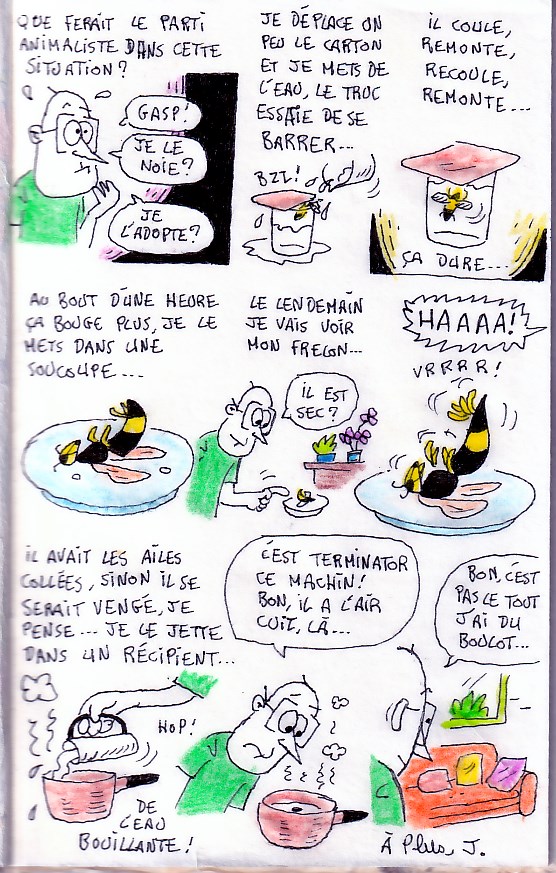 QUE FERAIT LE PARTI
ANIMALISTE DANS CETTE
SITUATION?
GASP!
JE LE
NOIE?
JE
L'ADOPTE?
JE DÉPLACE UN
PEU LE CARTON
ET JE METS DE
L'EAU, LE TRUC
ESSAIE DE SE
BARRER...
BZZ!
IL COULE,
REMONTE,
RECOULE,
REMONTE...
ÇA DURE...
AU BOUT D'UNE HEURE
ÇA BOUGE PLUS, JE LE
METS DANS UNE
SOUCOUPE...
LE LENDEMAIN
JE VAIS VOIR
MON FRELON...
IL EST
SEC?
HAAAA!
VRRRR!
IL AVAIT LES AILES
COLLÉES, SINON IL SE
SERAIT VENGÉ, JE
PENSE... JE LE JETTE
DANS UN RÉCIPIENT...
HOP!
DE
L'EAU
BOUILLANTE!
C'EST TERMINATOR
CE MACHIN!
BON, IL A L'AIR
CUIT, LÀ...
BON, C'EST
PAS LE TOUT
J'AI DU
BOULOT...
À Plus, J.